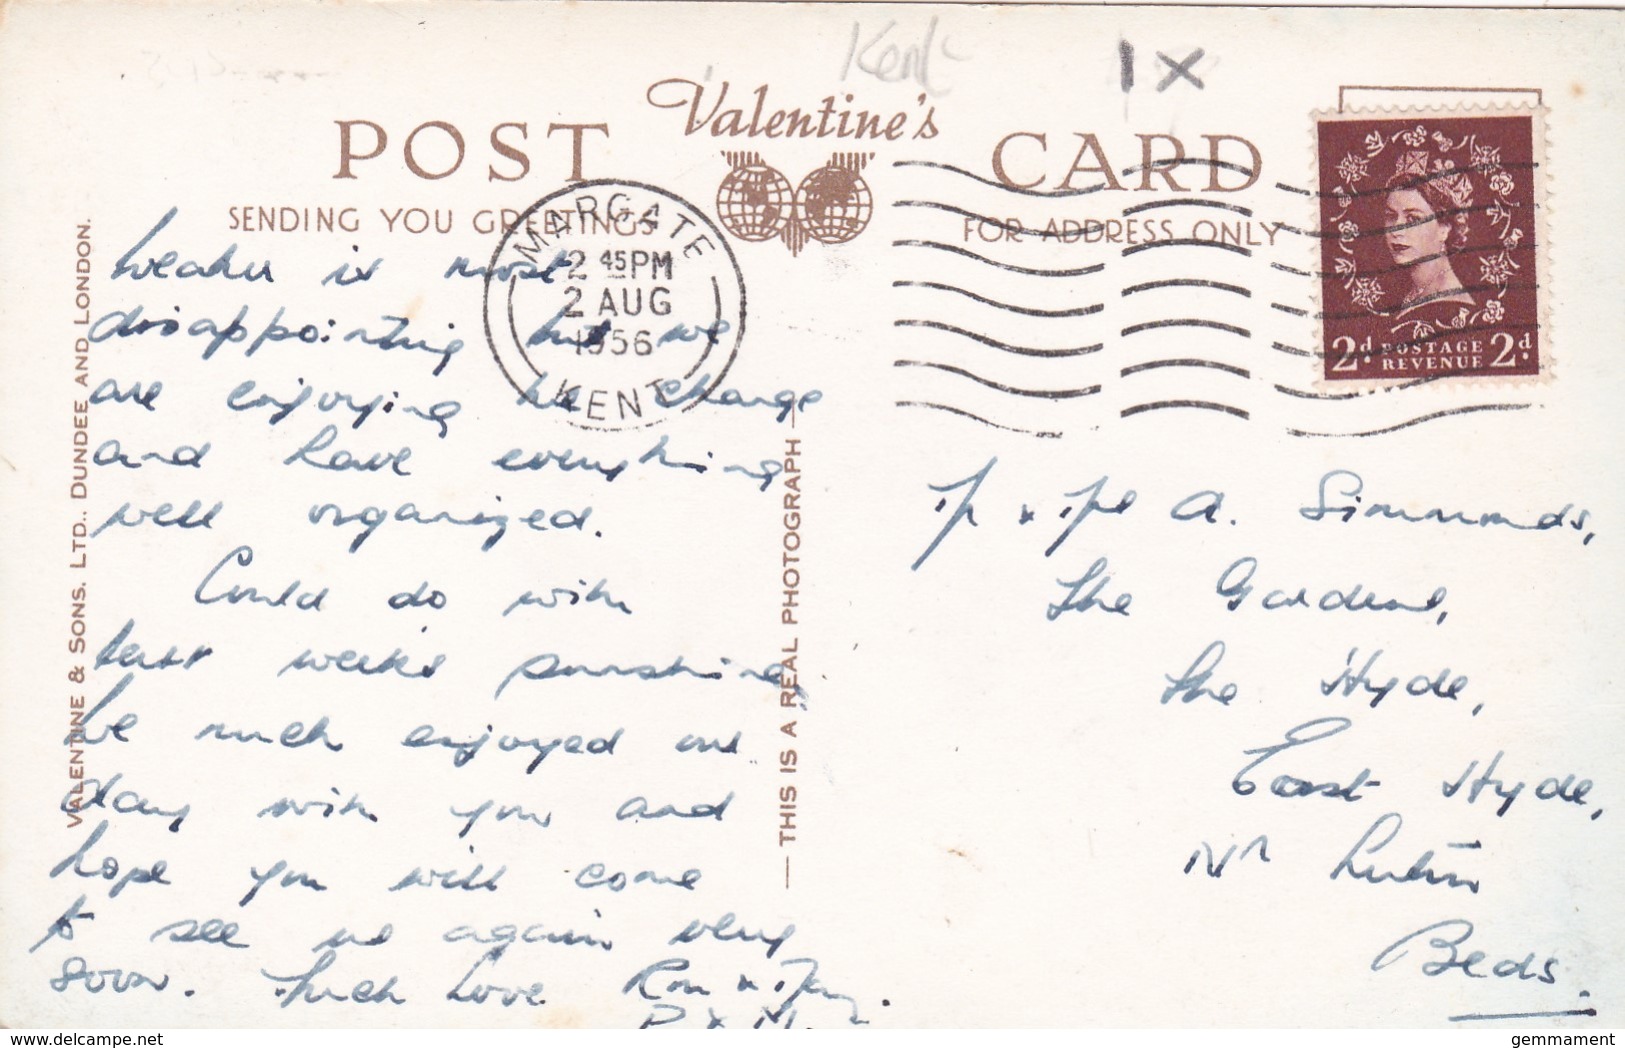 Kent
1 X
Valentine's
POST CARD
SENDING YOU GREETINGS
FOR ADDRESS ONLY
MARGATE
2 45 PM
2 AUG
1956
KENT
2d POSTAGE REVENUE 2d
VALENTINE & SONS. LTD., DUNDEE AND LONDON.
THIS IS A REAL PHOTOGRAPH
Weather is most
disappointing but we
are enjoying the change
and have everything
well organized.
Could do with
last weeks sunshine,
We much enjoyed our
day with you and
hope you will come
to see us again very
soon. Much love Ron &
P & M.
A. Simmonds,
The Gardens,
The Hyde,
East Hyde,
Nr Luton
Beds.
gemmament
© delcampe.net